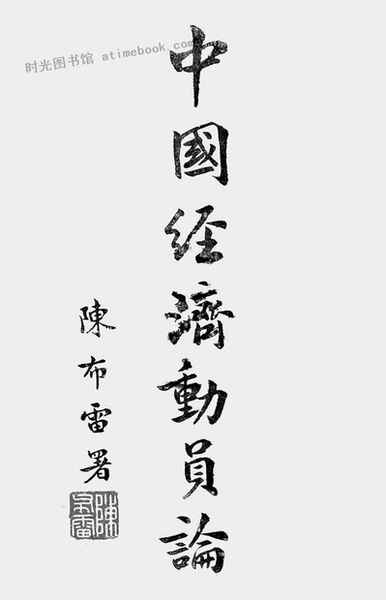 时光图书馆 atimebook.com
中國经濟動員論
陳布雷署
陳布雷